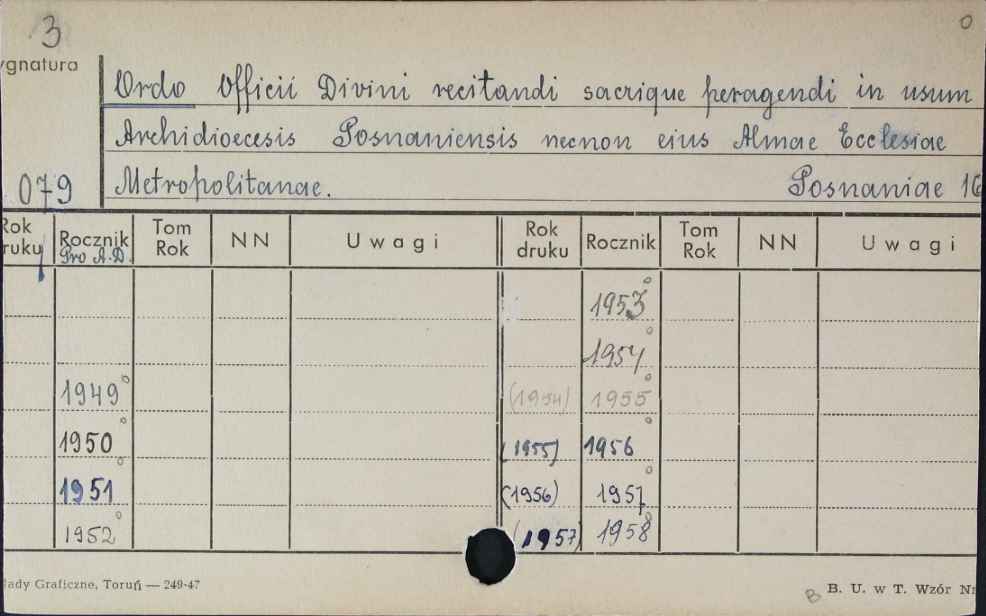 3 0
ygnatura
Ordo Officii Divini recitandi sacrique peragendi in usum
Archidioecesis Posnaniensis necnon eius Almae Ecclesiae
079 Metropolitanae. Posnaniae 16
Rok ruku Rocznik Pro A.D. Tom Rok NN Uwagi Rok druku Rocznik Tom Rok NN Uwagi
1953 o
1954 o
1949 o (1954) 1955 o
1950 o (1955) 1956 o
1951 o (1956) 1957 o
1952 o (1957) 1958 o
łady Graficzne, Toruń — 249-47 B B. U. w T. Wzór Nr